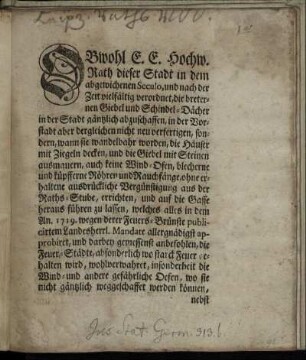 OBwohl E. E. Hochw.
Rath dieser Stadt in dem
abgewichenen Seculo, und nach der
Zeit vielfältig verordnet, die breter-
nen Giebel und Schindel-Dächer
in der Stadt gäntzlich abzuschaffen, in der Vor-
stadt aber dergleichen nicht neu verfertigen, son-
dern, wann sie wandelbahr worden, die Häuser
mit Ziegeln decken, und die Giebel mit Steinen
ausmauern, auch keine Wind-Ofen, blecherne
und küpfferne Röhren und Rauchfänge, ohne er-
haltene ausdrückliche Vergünstigung aus der
Raths-Stube, errichten, und auf die Gasse
heraus führen zu lassen, welches alles in dem
An. 1719. wegen derer Feuers-Brünste publi-
cirtem Landesherrl. Mandate allergnädigst ap-
probiret, und darbey gemessenst anbefohlen, die
Feuer-Städte, absonderlich wo starck Feuer ge-
halten wird, wohlverwahret, insonderheit die
Wind- und andere gefährliche Oefen, wo sie
nicht gäntzlich weggeschaffet werden können,
nebst